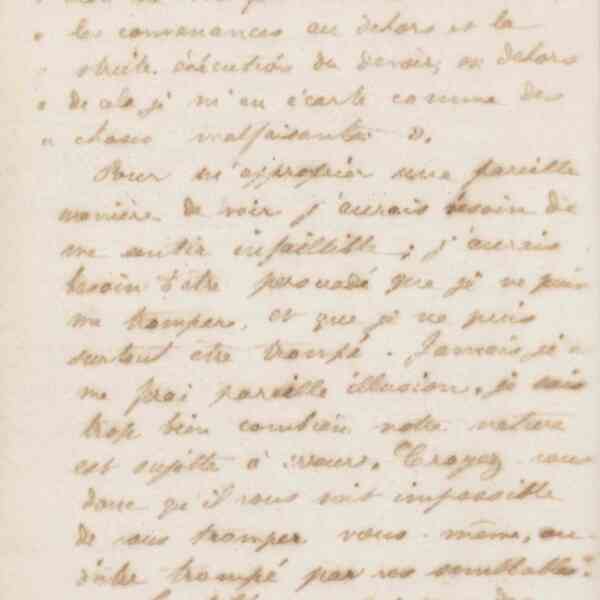 « les convenances au dehors et la
« stricte exécution du devoir, en dehors
« de cela, je m'en écarte comme des
« choses malfaisantes ».
Pour m'approprier une pareille
manière de voir j'aurais besoin de
me sentir infaillible ; j'aurais
besoin d'être persuadé que je ne puis
me tromper, et que je ne puis
surtout être trompé. Jamais je
me ferai pareille illusion, je sais
trop bien combien notre nature
est sujette à erreur. Croyez vous
donc qu'il vous soit impossible
de vous tromper vous-même, ou
d'être trompé par vos semblables ?